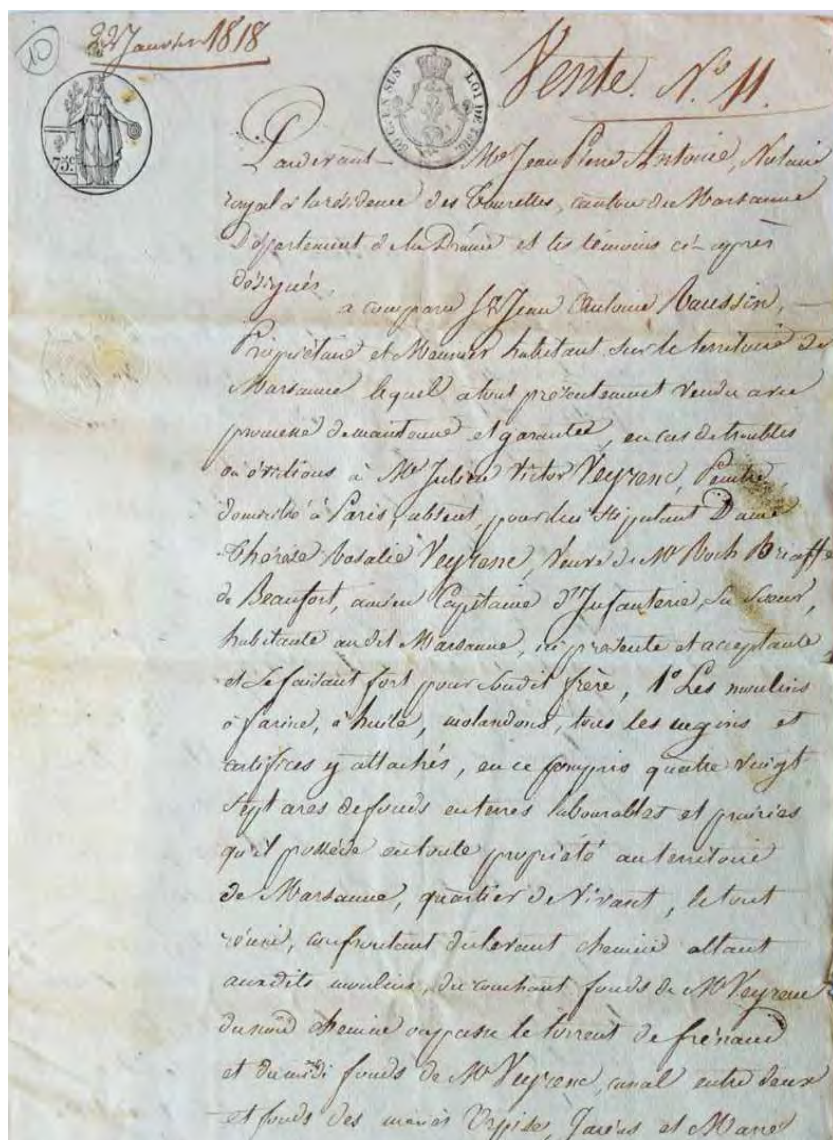 10
22 Janvier 1818
Vente. N.º 11.
75c.
50 C. EN SUS
LOI DE 1816
Pardevant Me Jean Pierre Antoine, Notaire
royal à la résidence des Tourettes, canton de Marsanne
Département de la Drôme et les témoins ci-après
désignés,
a comparu Sr Jean Antoine Vaussin, —
Propriétaire et Meunier habitant sur le territoire de
Marsanne lequel a tout présentement vendu avec
promesse de maintenue et garantie, en cas de troubles
ou évictions à Mr Julien Victor Veyrenc, Peintre,
domicilié à Paris, absent, pour lui stipulant Dame
Thérèse Rosalie Veyrenc, Veuve de Mr Roch
de Beaufort, ancien Capitaine d'Infanterie, sa soeur,
habitante audit Marsanne, ici présente et acceptante
et se faisant fort pour sondit frère, 1º Les moulins
à farine, à huile, tous les engins et
artifices y attachés, en ce compris quatre vingt
sept ares de fonds en terres labourables et prairies
qu'il possède en toute propriété au territoire
de Marsanne, quartier de Nivant, le tout
réuni, confrontant du levant chemin allant
auxdits moulins, du couchant fonds de Mr Veyrenc
du nord chemin où passe le torrent de
et du midi fonds de Mr Veyrenc, canal entre deux
et fonds des et Marre